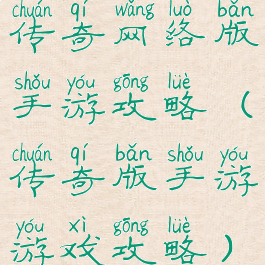 chuán qí wǎng luò bǎn
传奇网络版
shǒu yóu gōng lüè
手游攻略（
chuán qí bǎn shǒu yóu
传奇版手游
yóu xì gōng lüè
游戏攻略）